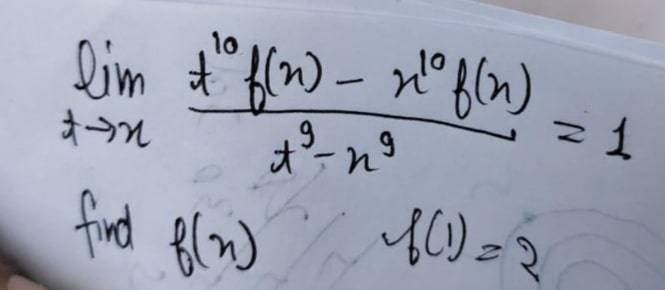 lim t→x (t^10 f(x) − x^10 f(x)) / (t^9 − x^9) = 1
find f(x)    f(1) = 2